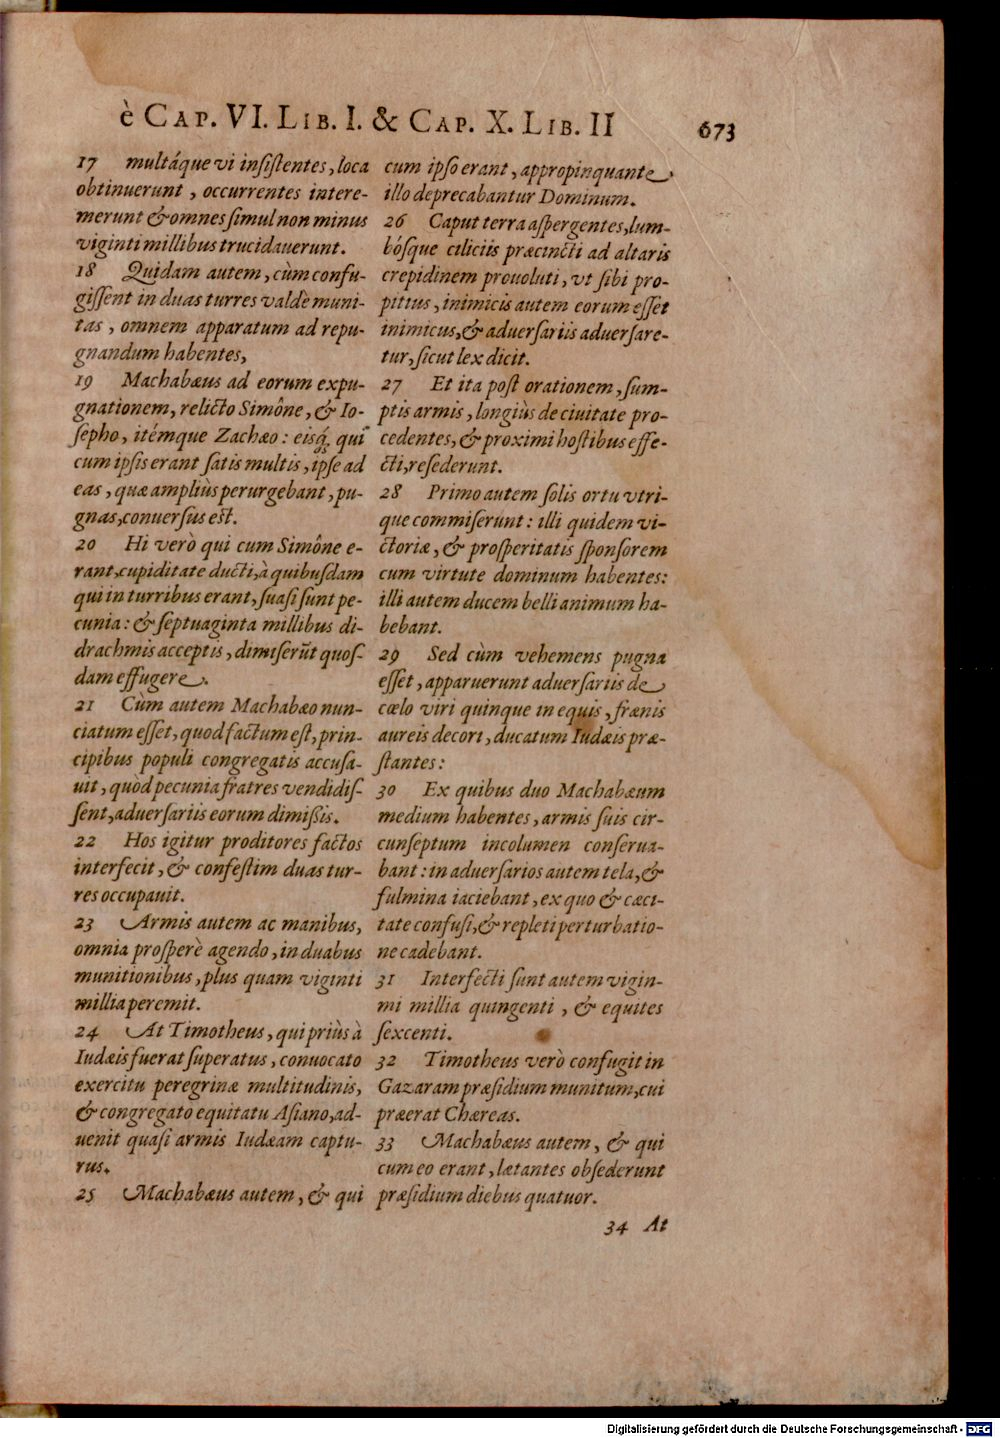 è CAP. VI. LIB. I. & CAP. X. LIB. II
673
17 multáque vi insistentes, loca
obtinuerunt, occurrentes intere-
merunt & omnes simul non minus
viginti millibus trucidauerunt.
18 Quidam autem, cùm confu-
gissent in duas turres valdè muni-
tas, omnem apparatum ad repu-
gnandum habentes,
19 Machabæus ad eorum expu-
gnationem, relicto Simône, & Io-
sepho, itémque Zachæo: eisq́; qui
cum ipsis erant satis multis, ipse ad
eas, quæ ampliùs perurgebant, pu-
gnas, conuersus est.
20 Hi verò qui cum Simône e-
rant, cupiditate ducti, à quibusdam
qui in turribus erant, suasi sunt pe-
cunia: & septuaginta millibus di-
drachmis acceptis, dimiserūt quos-
dam effugere.
21 Cùm autem Machabæo nun-
ciatum esset, quod factum est, prin-
cipibus populi congregatis accusa-
uit, quòd pecunia fratres vendidis-
sent, aduersariis eorum dimissis.
22 Hos igitur proditores factos
interfecit, & confestim duas tur-
res occupauit.
23 Armis autem ac manibus,
omnia prosperè agendo, in duabus
munitionibus, plus quam viginti
millia peremit.
24 At Timotheus, qui priùs à
Iudæis fuerat superatus, conuocato
exercitu peregrinæ multitudinis,
& congregato equitatu Asiano, ad-
uenit quasi armis Iudæam captu-
rus.
25 Machabæus autem, & qui
cum ipso erant, appropinquante
illo deprecabantur Dominum.
26 Caput terra aspergentes, lum-
bósque ciliciis præcincti ad altaris
crepidinem prouoluti, vt sibi pro-
pitius, inimicis autem eorum esset
inimicus, & aduersariis aduersare-
tur, sicut lex dicit.
27 Et ita post orationem, sum-
ptis armis, longiùs de ciuitate pro-
cedentes, & proximi hostibus effe-
cti, resederunt.
28 Primo autem solis ortu vtri-
que commiserunt: illi quidem vi-
ctoriæ, & prosperitatis sponsorem
cum virtute dominum habentes:
illi autem ducem belli animum ha-
bebant.
29 Sed cùm vehemens pugna
esset, apparuerunt aduersariis de
cœlo viri quinque in equis, frænis
aureis decori, ducatum Iudæis præ-
stantes:
30 Ex quibus duo Machabæum
medium habentes, armis suis cir-
cunseptum incolumen conserua-
bant: in aduersarios autem tela, &
fulmina iaciebant, ex quo & cæci-
tate confusi, & repleti perturbatio-
ne cadebant.
31 Interfecti sunt autem vigin-
mi millia quingenti, & equites
sexcenti.
32 Timotheus verò confugit in
Gazaram præsidium munitum, cui
præerat Chæreas.
33 Machabæus autem, & qui
cum eo erant, lætantes obsederunt
præsidium diebus quatuor.
34 At
Digitalisierung gefördert durch die Deutsche Forschungsgemeinschaft - DFG